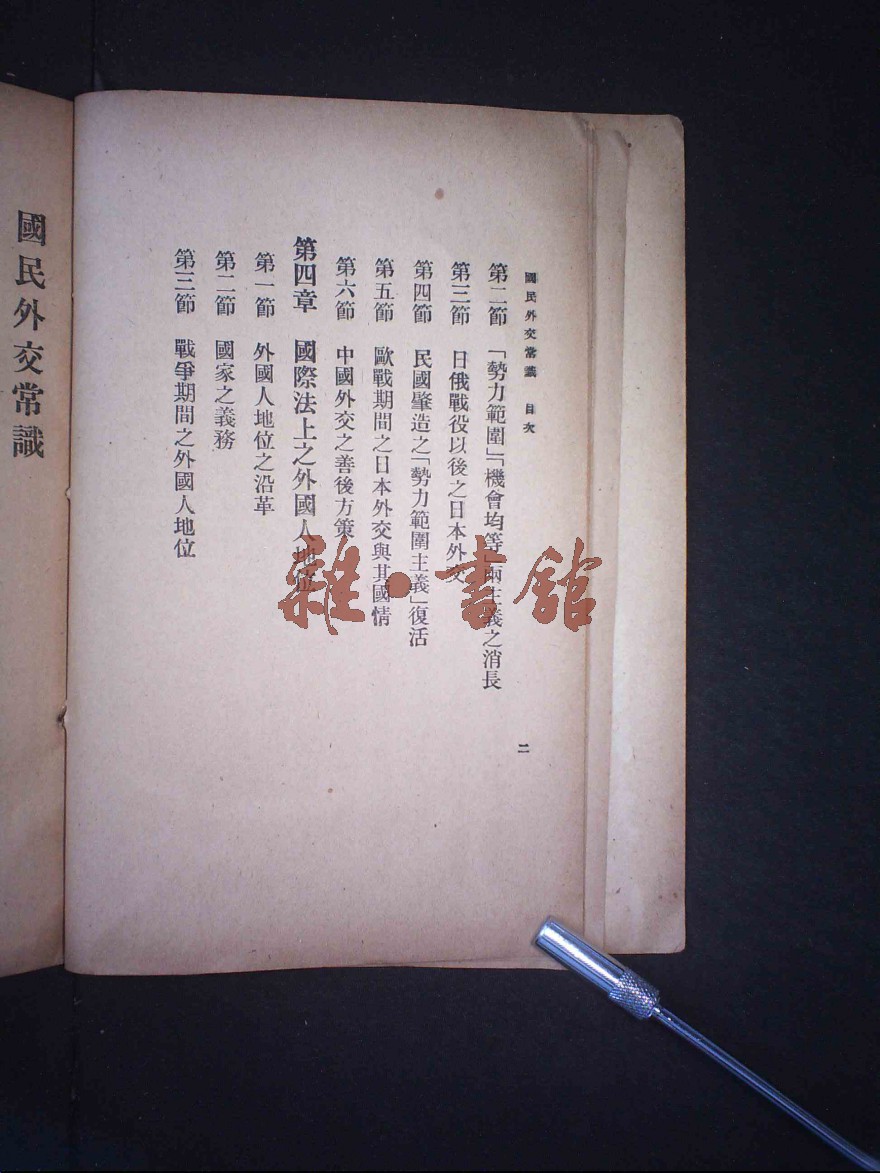 國民外交常識　目次
第二節　「勢力範圍」「機會均等」兩主義之消長
第三節　日俄戰役以後之日本外交
第四節　民國肇造之「勢力範圍主義」復活
第五節　歐戰期間之日本外交與其國情
第六節　中國外交之善後方策
第四章　國際法上之外國人地位
第一節　外國人地位之沿革
第二節　國家之義務
第三節　戰爭期間之外國人地位
二
國民外交常識
雜·書館